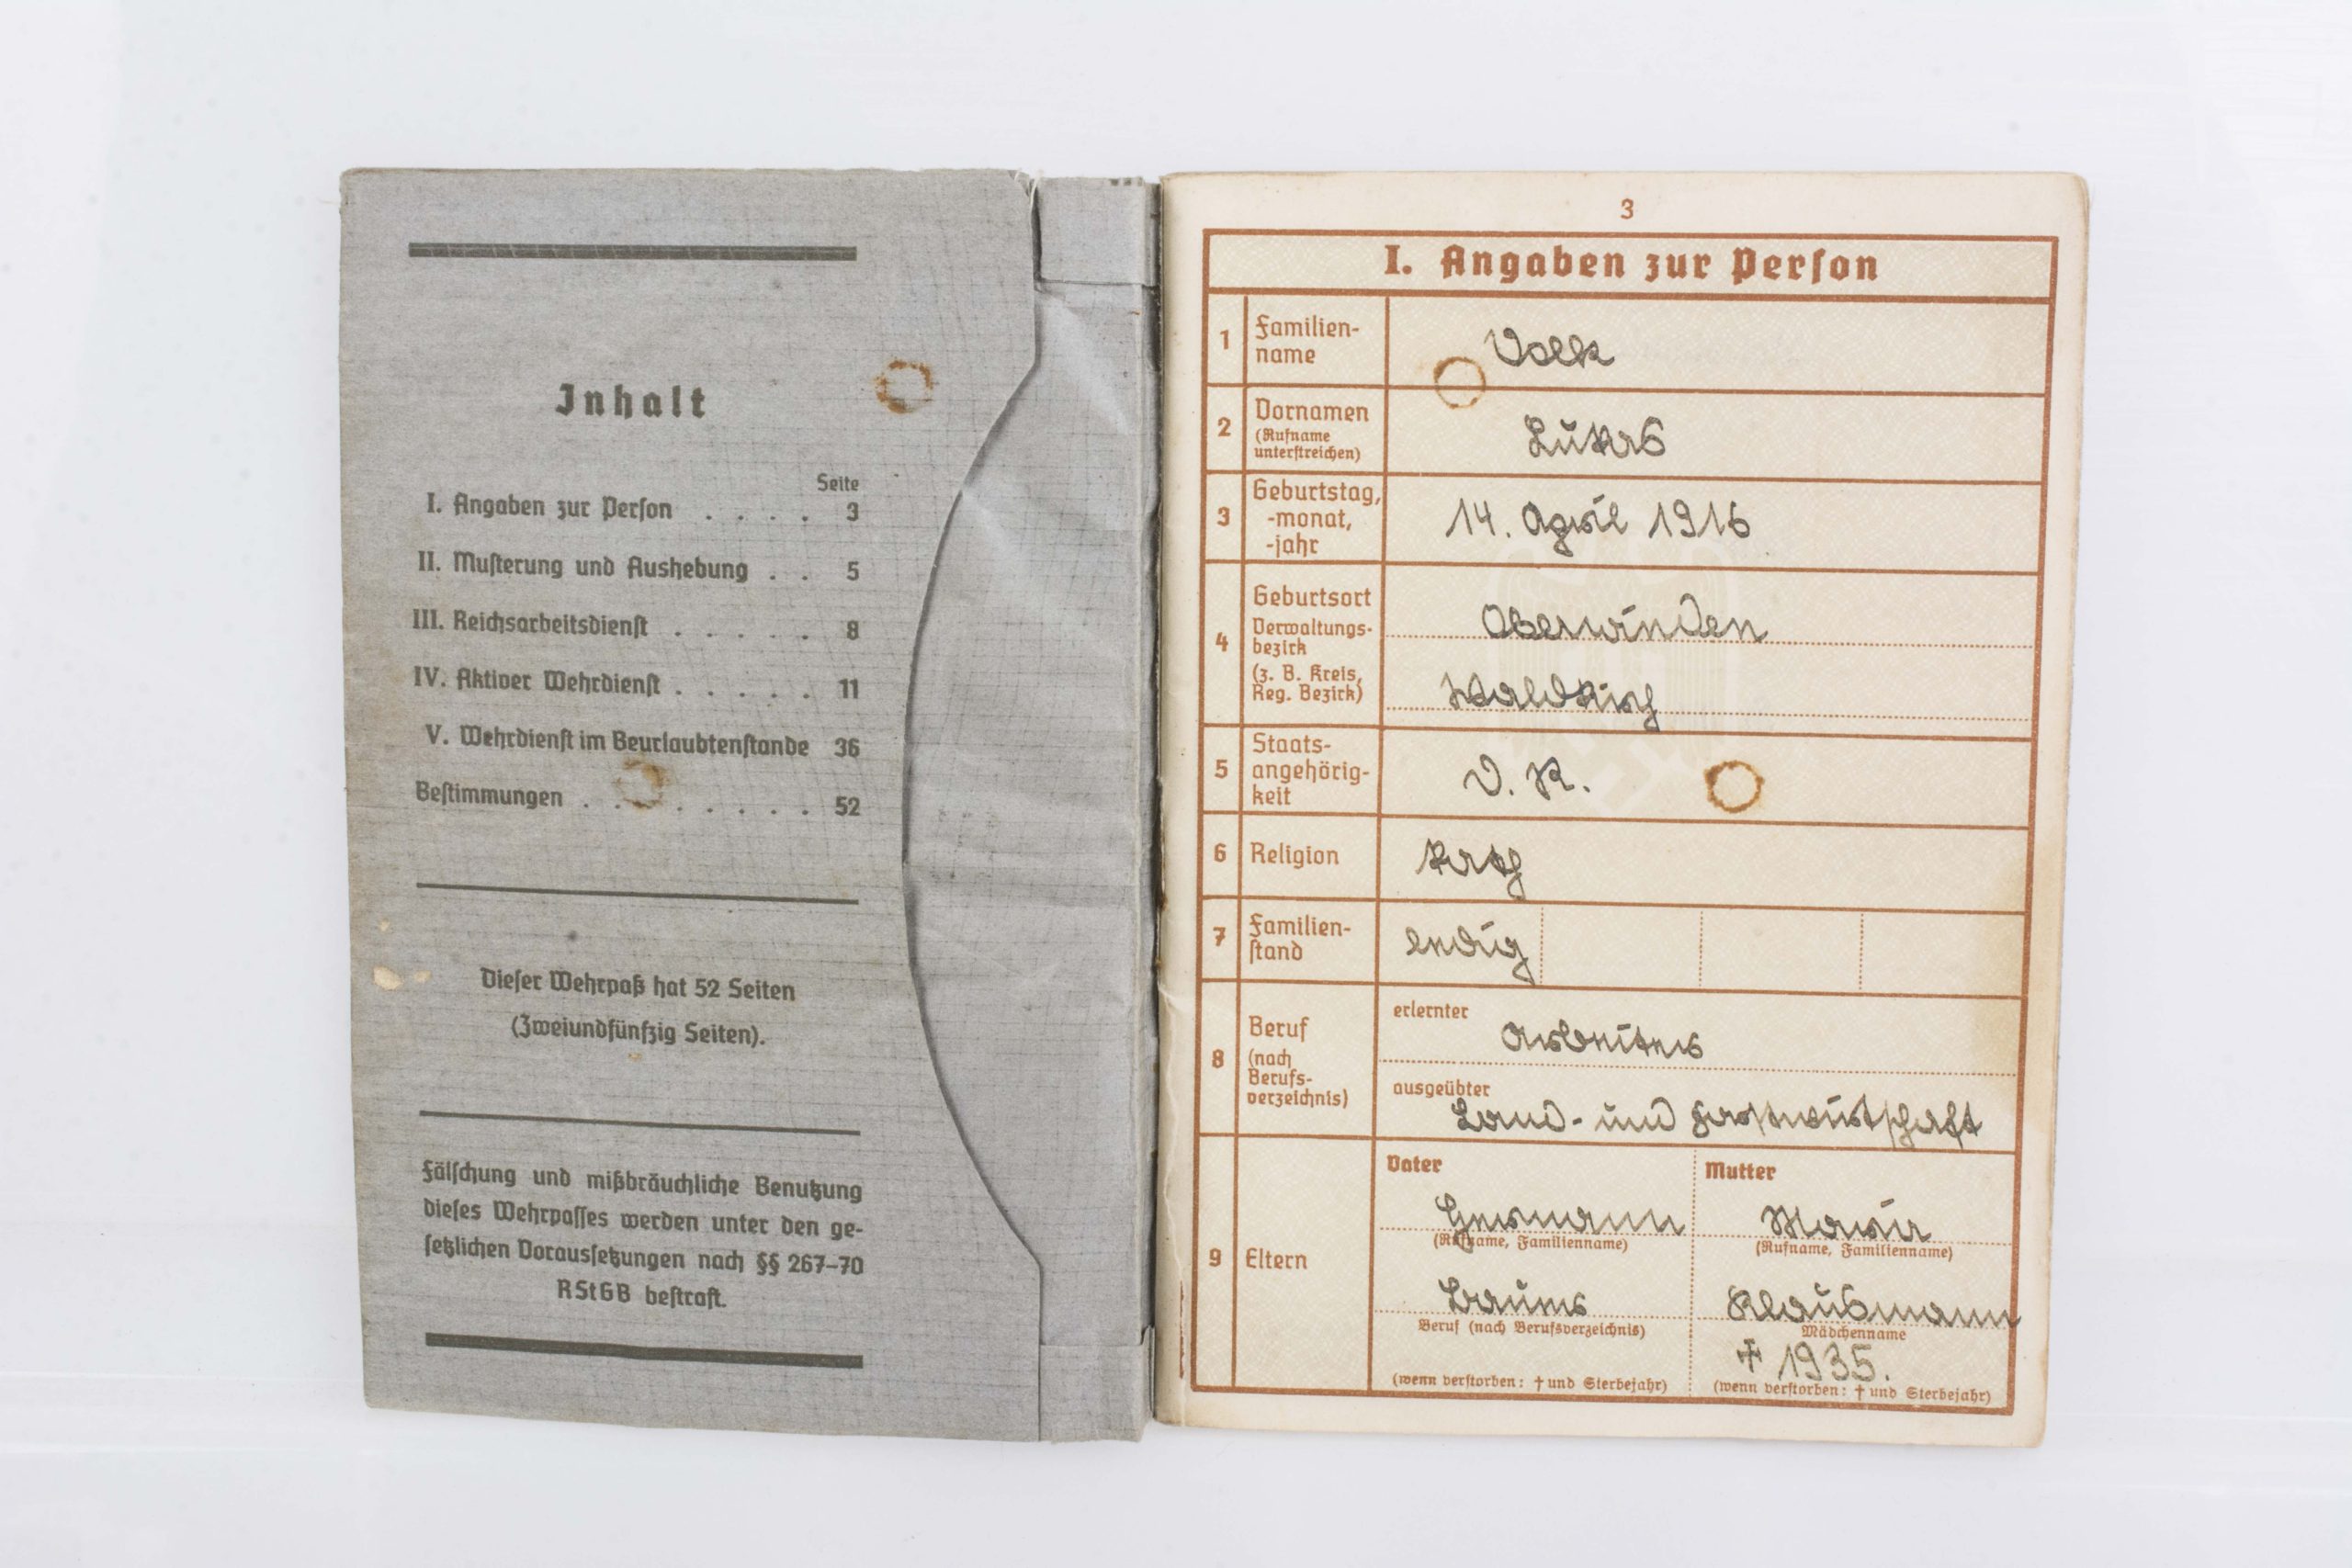 Inhalt
Seite
I. Angaben zur Perſon . . . . 3
II. Muſterung und Aushebung . . 5
III. Reichsarbeitsdienſt . . . . . 8
IV. Aktiver Wehrdienſt . . . . . 11
V. Wehrdienſt im Beurlaubtenſtande 36
Beſtimmungen . . . . . . . . 52
Dieſer Wehrpaß hat 52 Seiten
(Zweiundfünfzig Seiten).
Fälſchung und mißbräuchliche Benutzung
dieſes Wehrpaſſes werden unter den ge-
ſetzlichen Vorausſetzungen nach §§ 267–70
RStGB beſtraft.
3
I. Angaben zur Perſon
1 Familien-
name
Volk
2 Vornamen
(Rufname
unterſtreichen)
Lukas
3 Geburtstag,
-monat,
-jahr
14. April 1916
4 Geburtsort
Verwaltungs-
bezirk
(z. B. Kreis,
Reg. Bezirk)
Oberwinden
Waldkirch
5 Staats-
angehörig-
keit
D. R.
6 Religion
kath
7 Familien-
ſtand
ledig
8 Beruf
(nach
Berufs-
verzeichnis)
erlernter
Arbeiter
ausgeübter
Land- und Forſtwirtſchaft
9 Eltern
Vater Mutter
Hermann Maria
(Rufname, Familienname) (Rufname, Familienname)
Klausmann
Beruf (nach Berufsverzeichnis) Mädchenname
† 1935.
(wenn verſtorben: † und Sterbejahr) (wenn verſtorben: † und Sterbejahr)